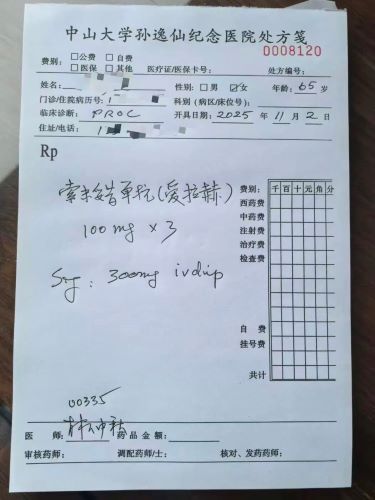 中山大学孙逸仙纪念医院处方笺
0008120
费别：□公费 □自费
□医保 □其他 医疗证/医保卡号： 处方编号：
姓名： 性别：□男 ☑女 年龄：65岁
门诊/住院病历号：1 科别（病区/床位号）：
临床诊断：PROC 开具日期：2025年11月2日
住址/电话：1
Rp
索卡佐告单抗(爱拉赫)
100mg ×3
Sig: 300mg ivdrip
费别： 千 百 十 元 角 分
西药费
中药费
注射费
治疗费
检查费
自费
挂号费
共计
00335
医师： 药品金额：
审核药师： 调配药师/士： 核对、发药药师：